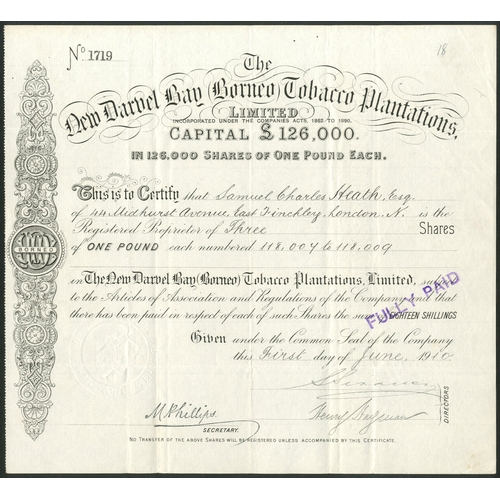 No 1719
18
The
New Darvel Bay Borneo Tobacco Plantations,
LIMITED
INCORPORATED UNDER THE COMPANIES ACTS, 1862 TO 1890.
CAPITAL £126,000.
IN 126,000 SHARES OF ONE POUND EACH.
This is to Certify that Samuel Charles Heath, Esq.
of 44 Midhurst Avenue, East Finchley, London, N. is the
Registered Proprietor of Three Shares
of ONE POUND each numbered 118,007 to 118,009
in The New Darvel Bay (Borneo) Tobacco Plantations, Limited,
to the Articles of Association and Regulations of the Company and that
there has been paid in respect of each of such Shares the sum EIGHTEEN SHILLINGS
FULLY PAID
Given under the Common Seal of the Company
this First day of June, 1910.
M. Phillips.
SECRETARY.
DIRECTORS
NO TRANSFER OF THE ABOVE SHARES WILL BE REGISTERED UNLESS ACCOMPANIED BY THIS CERTIFICATE.
BORNEO